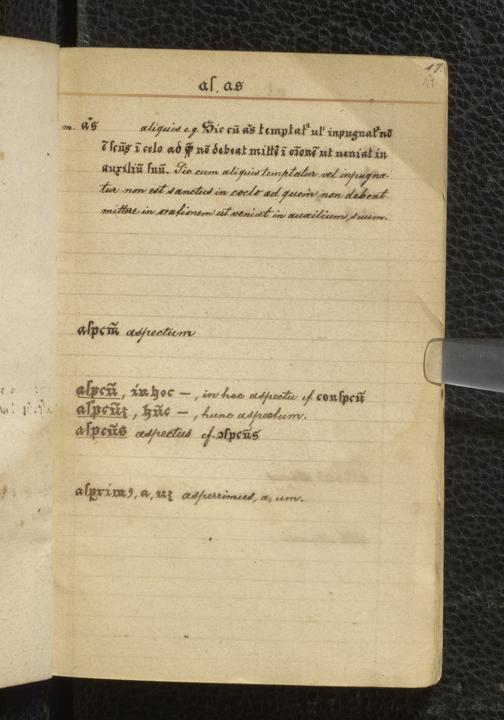 17.
17
aſ, as
m. a͞s aliquis e.g. Sic cū a͞s temptat᷑ ul' inpugnat᷑ nō
ē ſcūs ī celo ad quē nō debeat mittē ī or̄onē ut ueniat in
auxiliū ſuū. Sic cum aliquis temptatur vel inpugna-
tur non est sanctus in coelo ad quem non debeat
mittere in orationem ut veniat in auxilium suum.
aſpcm̄ aspectum
aſpcū, in hoc –, in hoc aspectu cf. conſpcū
aſpcūȝ, hūc –, hunc aspectum.
aſpcūs aspectus cf. ꝯſpcūs
aſꝑrimꝰ, a, uȝ asperrimus, a, um.